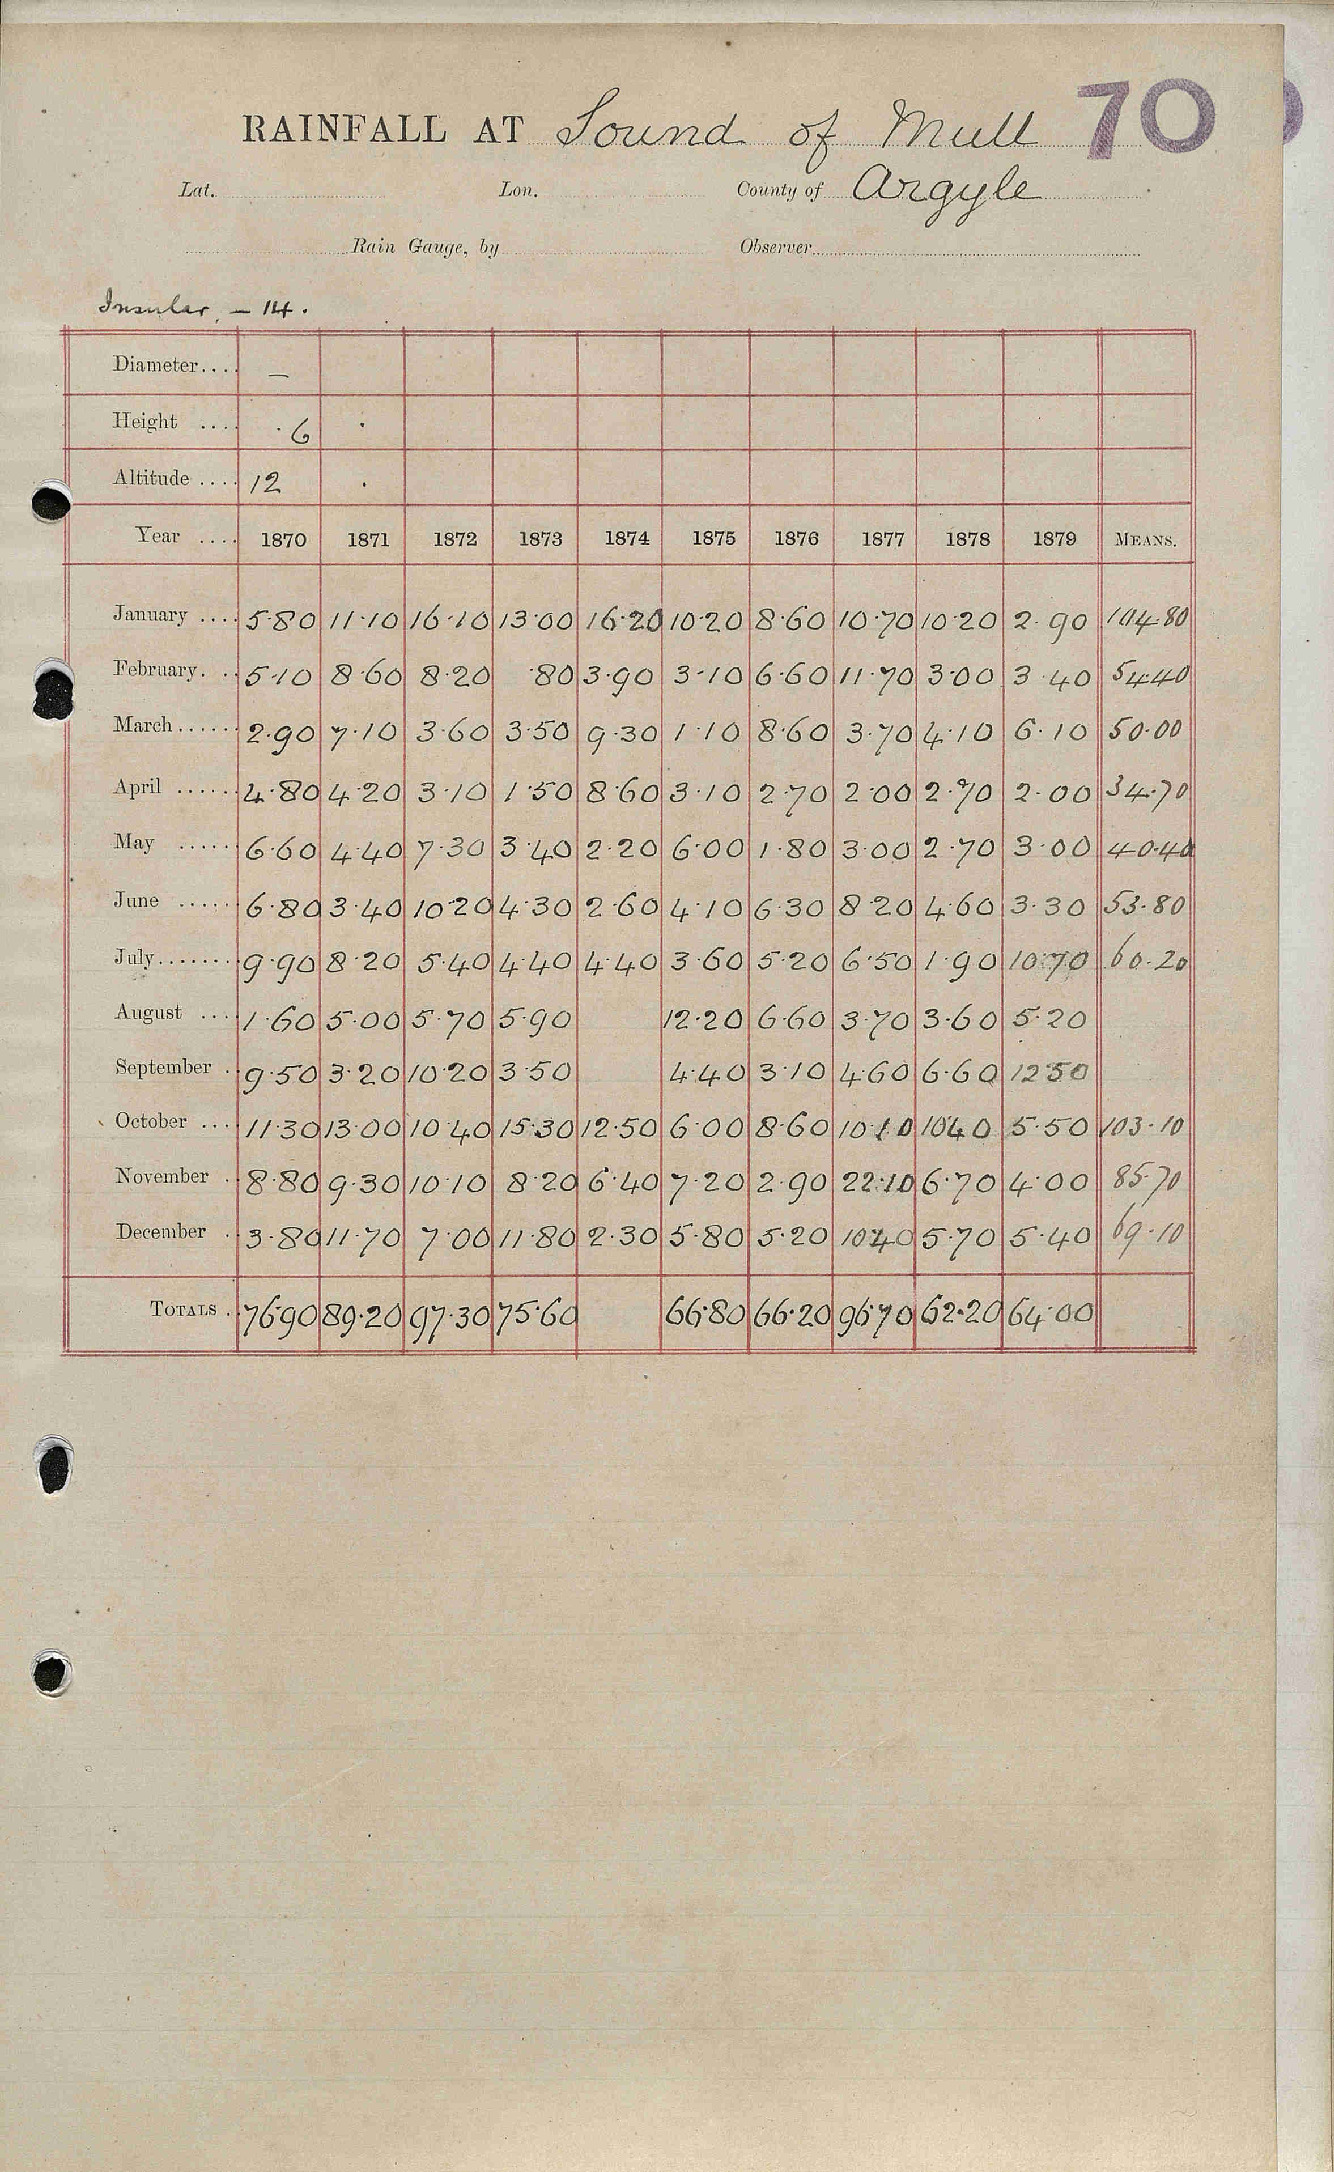 70
RAINFALL AT Sound of Mull
Lat. Lon. County of Argyle
Rain Gauge, by Observer
Insular, – 14.
Diameter.... –
Height .... ·6 ·
Altitude .... 12 ·
Year .... 1870 1871 1872 1873 1874 1875 1876 1877 1878 1879 MEANS.
January .... 5·80 11·10 16·10 13·00 16·20 10·20 8·60 10·70 10·20 2·90 104·80
February. .. 5·10 8·60 8·20 ·80 3·90 3·10 6·60 11·70 3·00 3·40 54·40
March...... 2·90 7·10 3·60 3·50 9·30 1·10 8·60 3·70 4·10 6·10 50·00
April ...... 4·80 4·20 3·10 1·50 8·60 3·10 2·70 2·00 2·70 2·00 34·70
May ...... 6·60 4·40 7·30 3·40 2·20 6·00 1·80 3·00 2·70 3·00 40·40
June ...... 6·80 3·40 10·20 4·30 2·60 4·10 6·30 8·20 4·60 3·30 53·80
July........ 9·90 8·20 5·40 4·40 4·40 3·60 5·20 6·50 1·90 10·70 60·20
August .... 1·60 5·00 5·70 5·90 12·20 6·60 3·70 3·60 5·20
September .. 9·50 3·20 10·20 3·50 4·40 3·10 4·60 6·60 12·50
October .... 11·30 13·00 10·40 15·30 12·50 6·00 8·60 10·10 10·40 5·50 103·10
November .. 8·80 9·30 10·10 8·20 6·40 7·20 2·90 22·10 6·70 4·00 85·70
December .. 3·80 11·70 7·00 11·80 2·30 5·80 5·20 10·40 5·70 5·40 69·10
TOTALS .. 76·90 89·20 97·30 75·60 66·80 66·20 96·70 62·20 64·00